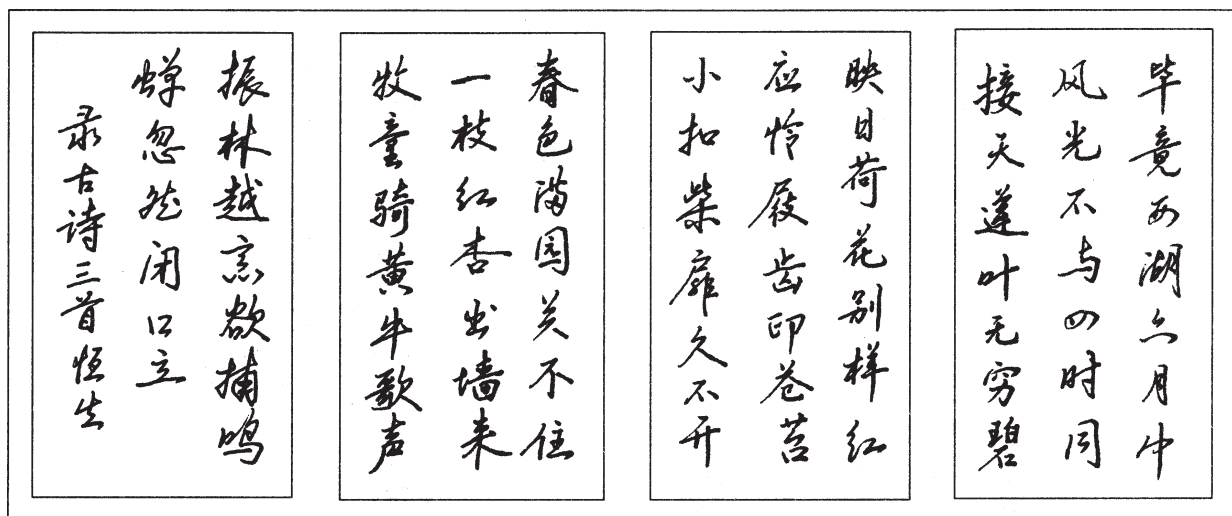 毕竟西湖六月中
风光不与四时同
接天莲叶无穷碧
映日荷花别样红
应怜屐齿印苍苔
小扣柴扉久不开
春色满园关不住
一枝红杏出墙来
牧童骑黄牛歌声
振林越意欲捕鸣
蝉忽然闭口立
录古诗三首恒生